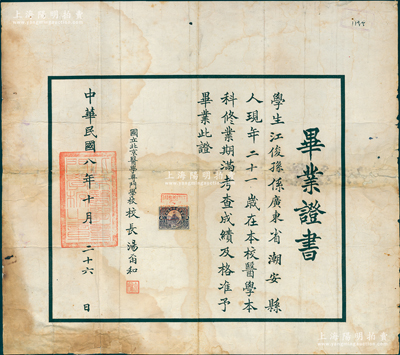 上海陽明拍賣
畢業證書
學生江俊孫係廣東省潮安縣
人現年二十一歲在本校醫學本
科修業期滿考查成績及格准予
畢業此證
國立北京醫學專門學校校長湯爾和
中華民國八年十月二十六日
上海陽明拍賣